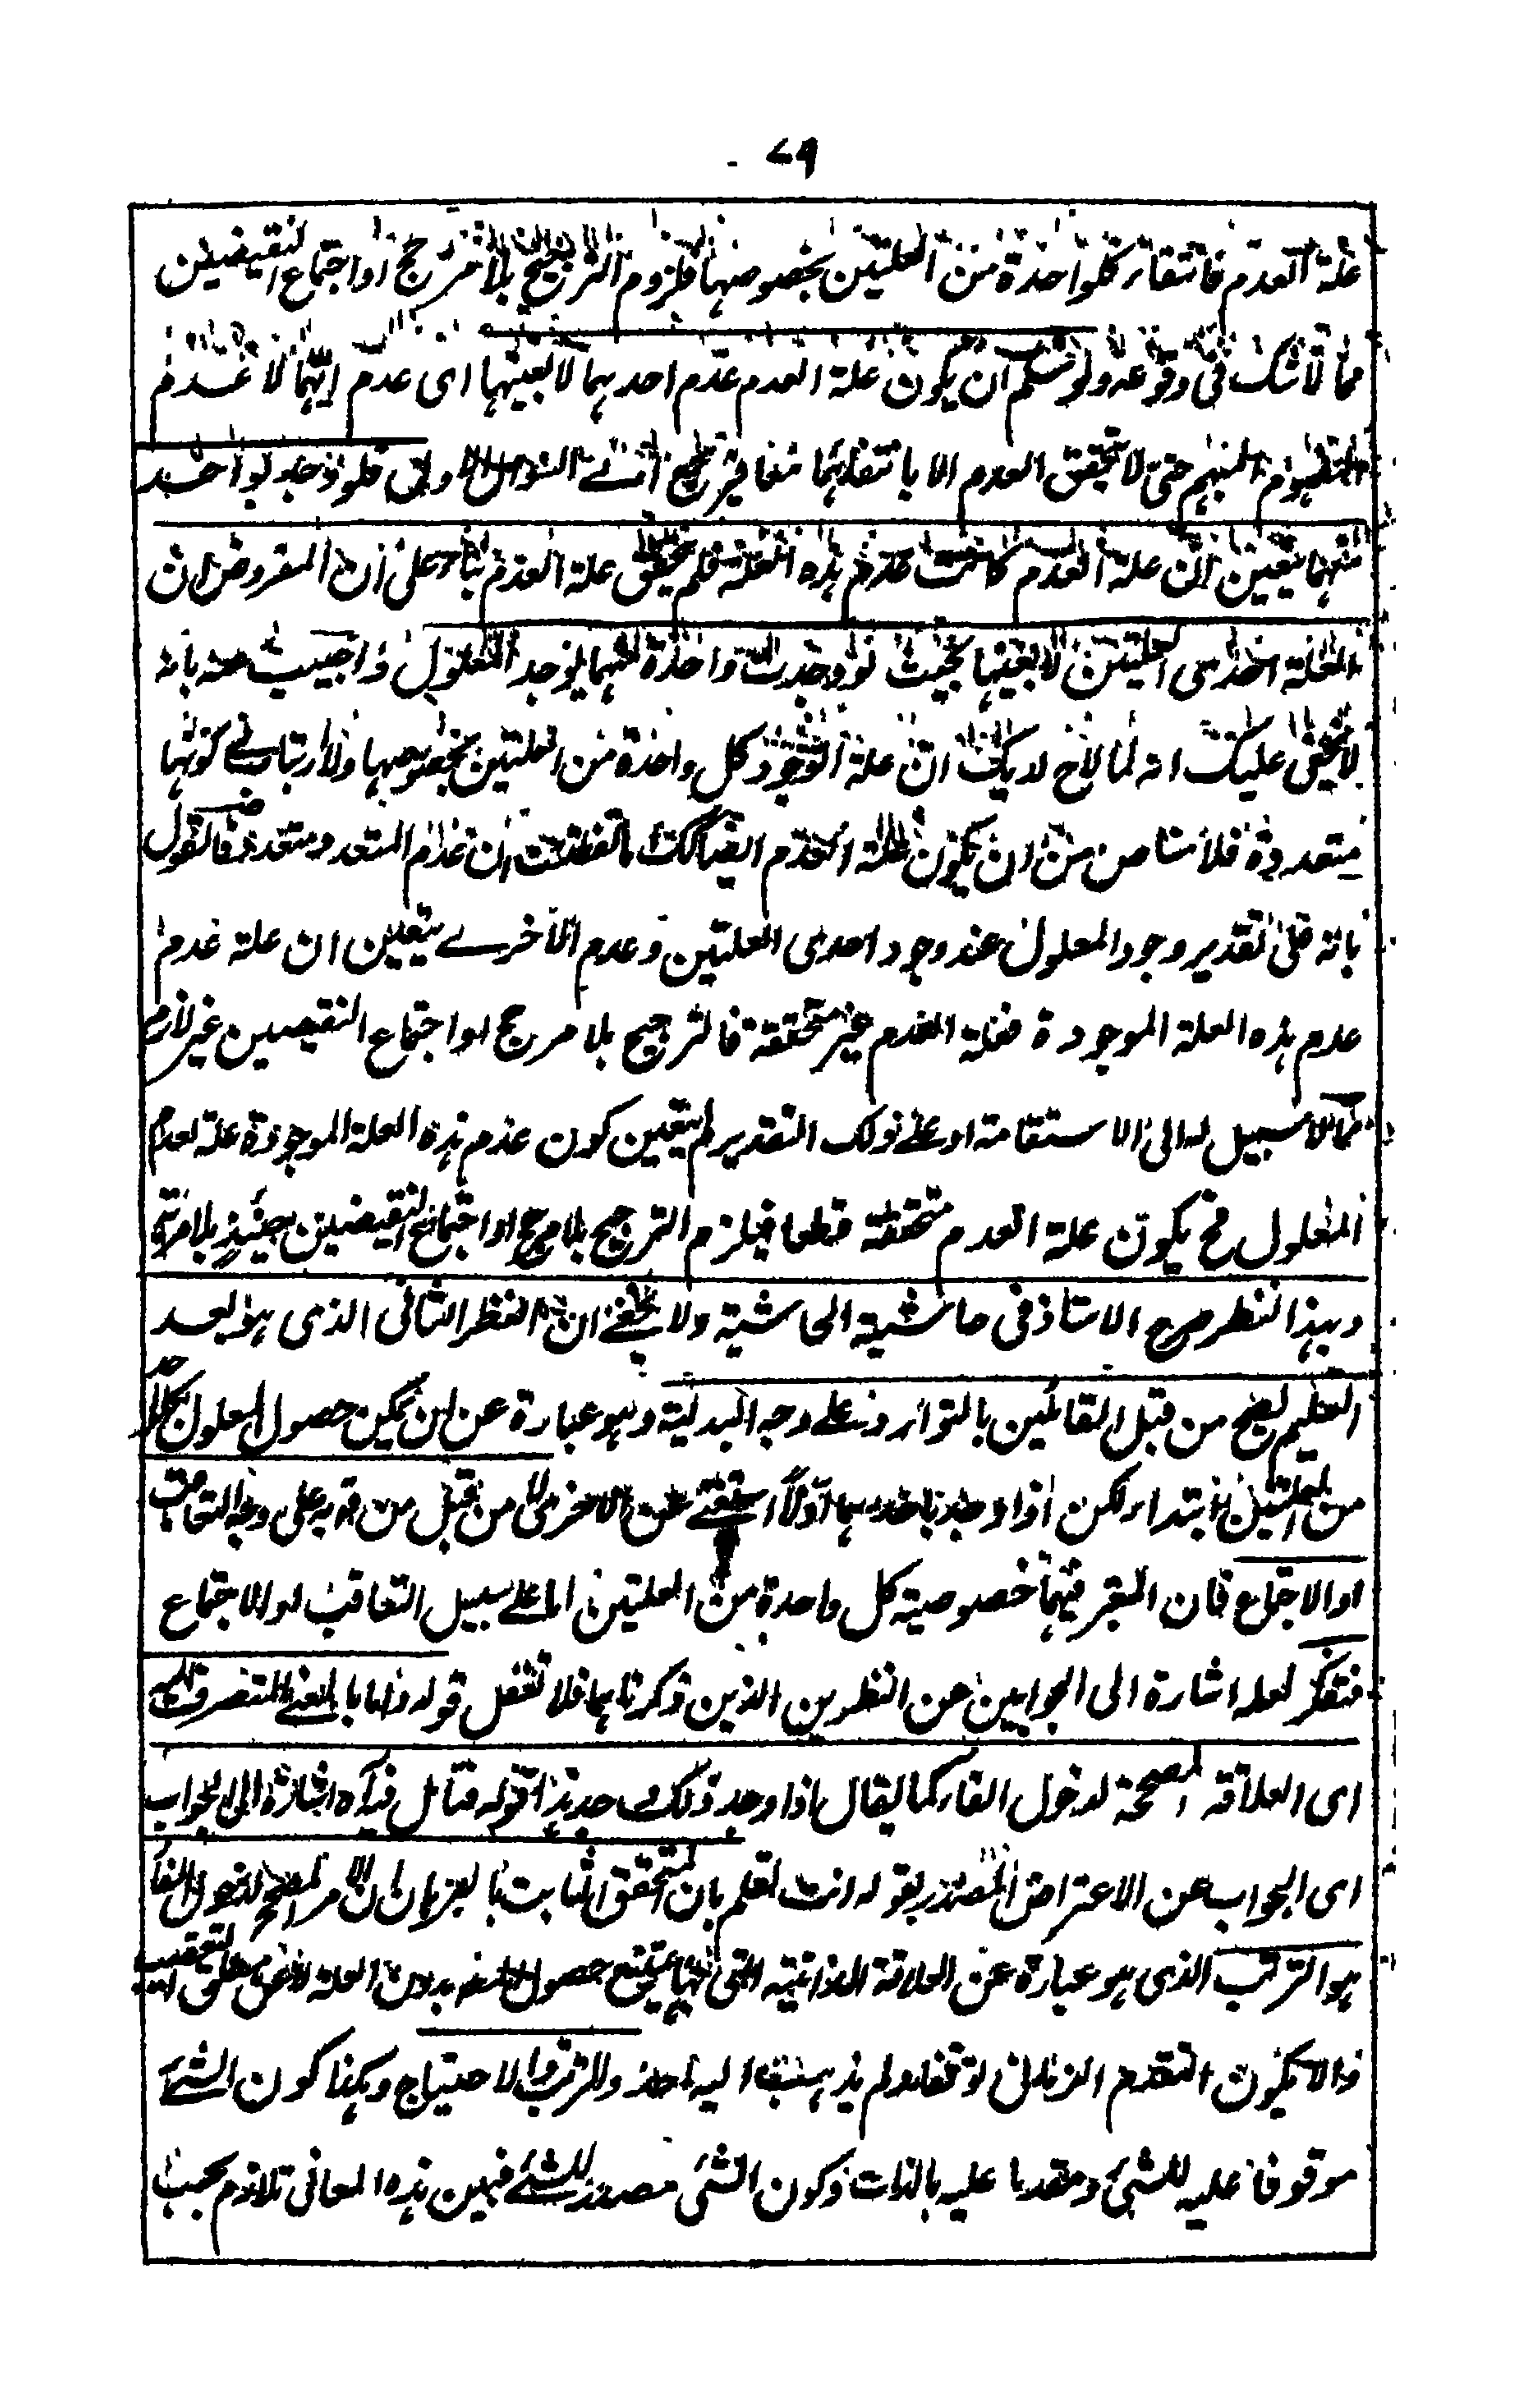 ٧٩
علة العدم فانتفاء كلواحدة من العلتين بخصوصها فلزوم الترجيح بلا مرجح او اجتماع النقيضين
مما لا شك في وقوعه ولو سلم ان يكون علة العدم عدم احدىهما لا بعينها اى عدم ايتهما لا عدم
المفهوم المبهم حتى لا يتحقق العدم الا بانتفائهما معا فيرجح الى السوال الاولى فلو وجد بواحد
منهما يتعين ان علة العدم كانت عدم هذه العلة فلم يتحقق علة العدم بناء على ان المفروض ان
العلة احدى العلتين لا بعينها بحيث لو وجدت واحدة منهما يوجد المعلول واجيب عنه بانه
لا يخفى عليك انه لما لاح لديك ان علة الوجود كل واحدة من العلتين بخصوصها ولا ارتياب في كونها
متعددة فلا مناص من ان يكون علة العدم ايضا كك ما تفطنت ان عدم المتعدد متعدد فالقول
بانه على تقدير وجود المعلول عند وجود احدى العلتين وعدم الاخرے يتعين ان علة عدم
عدم هذه العلة الموجودة فعلة العدم غير متحققة فالترجيح بلا مرجح او اجتماع النقيضين غير لازم
مما لا سبيل له الى الاستقامة اذ على ذلك التقدير لم يتعين كون عدم هذه العلة الموجودة علة لعدم
المعلول فح يكون علة العدم متحققة قطعا فيلزم الترجيح بلا مرجح او اجتماع النقيضين حينئذ بلا مرية
وبهذا النظر صرح الاستاذ فى حاشية الحاشية ولا يخفے ان النظر الثانى الذى هو بعد
التسليم يصح من قبل القائلين بالتوارد على وجه البدلية وهو عبارة عن ان يمكن حصول المعلول بكل
من العلتين ابتداء لكن اذا وجد باحدىهما اولا استغنے عن الاخرى لا من قبل من قربه على وجه التعاقب
او الاجتماع فان المعتبر فيهما خصوصية كل واحدة من العلتين اما على سبيل التعاقب او الاجتماع
فتفكر لعله اشارة الى الجوابين عن النظرين الذين ذكرناهما فلا تغفل قوله واما بالمعنے المتعرف الخ
اى العلاقة المصححة لدخول الفاء كما يقال اذا وجد ذلك وجد هذا قوله فتامل فيه اشارة الى الجواب
اى الجواب عن الاعتراض المصدر بقوله وانت تعلم بان المتحقق الثابت بالبرهان ان الامر المصحح لدخول الفاء
هو الترتب الذى هو عبارة عن العلاقة الذاتية التى بها يمتنع حصول بدون العلة لا عن مطلق التعقيب
والا يكون التقدم الزمانى توقفا ولم يذهب اليه احد والترتب والاحتياج وهكذا كون الشئ
موقوفا عليه للشئ ومقدما عليه بالذات وكون الشئ مصدرا للشئ فبين هذه المعانى تلازم بحسب